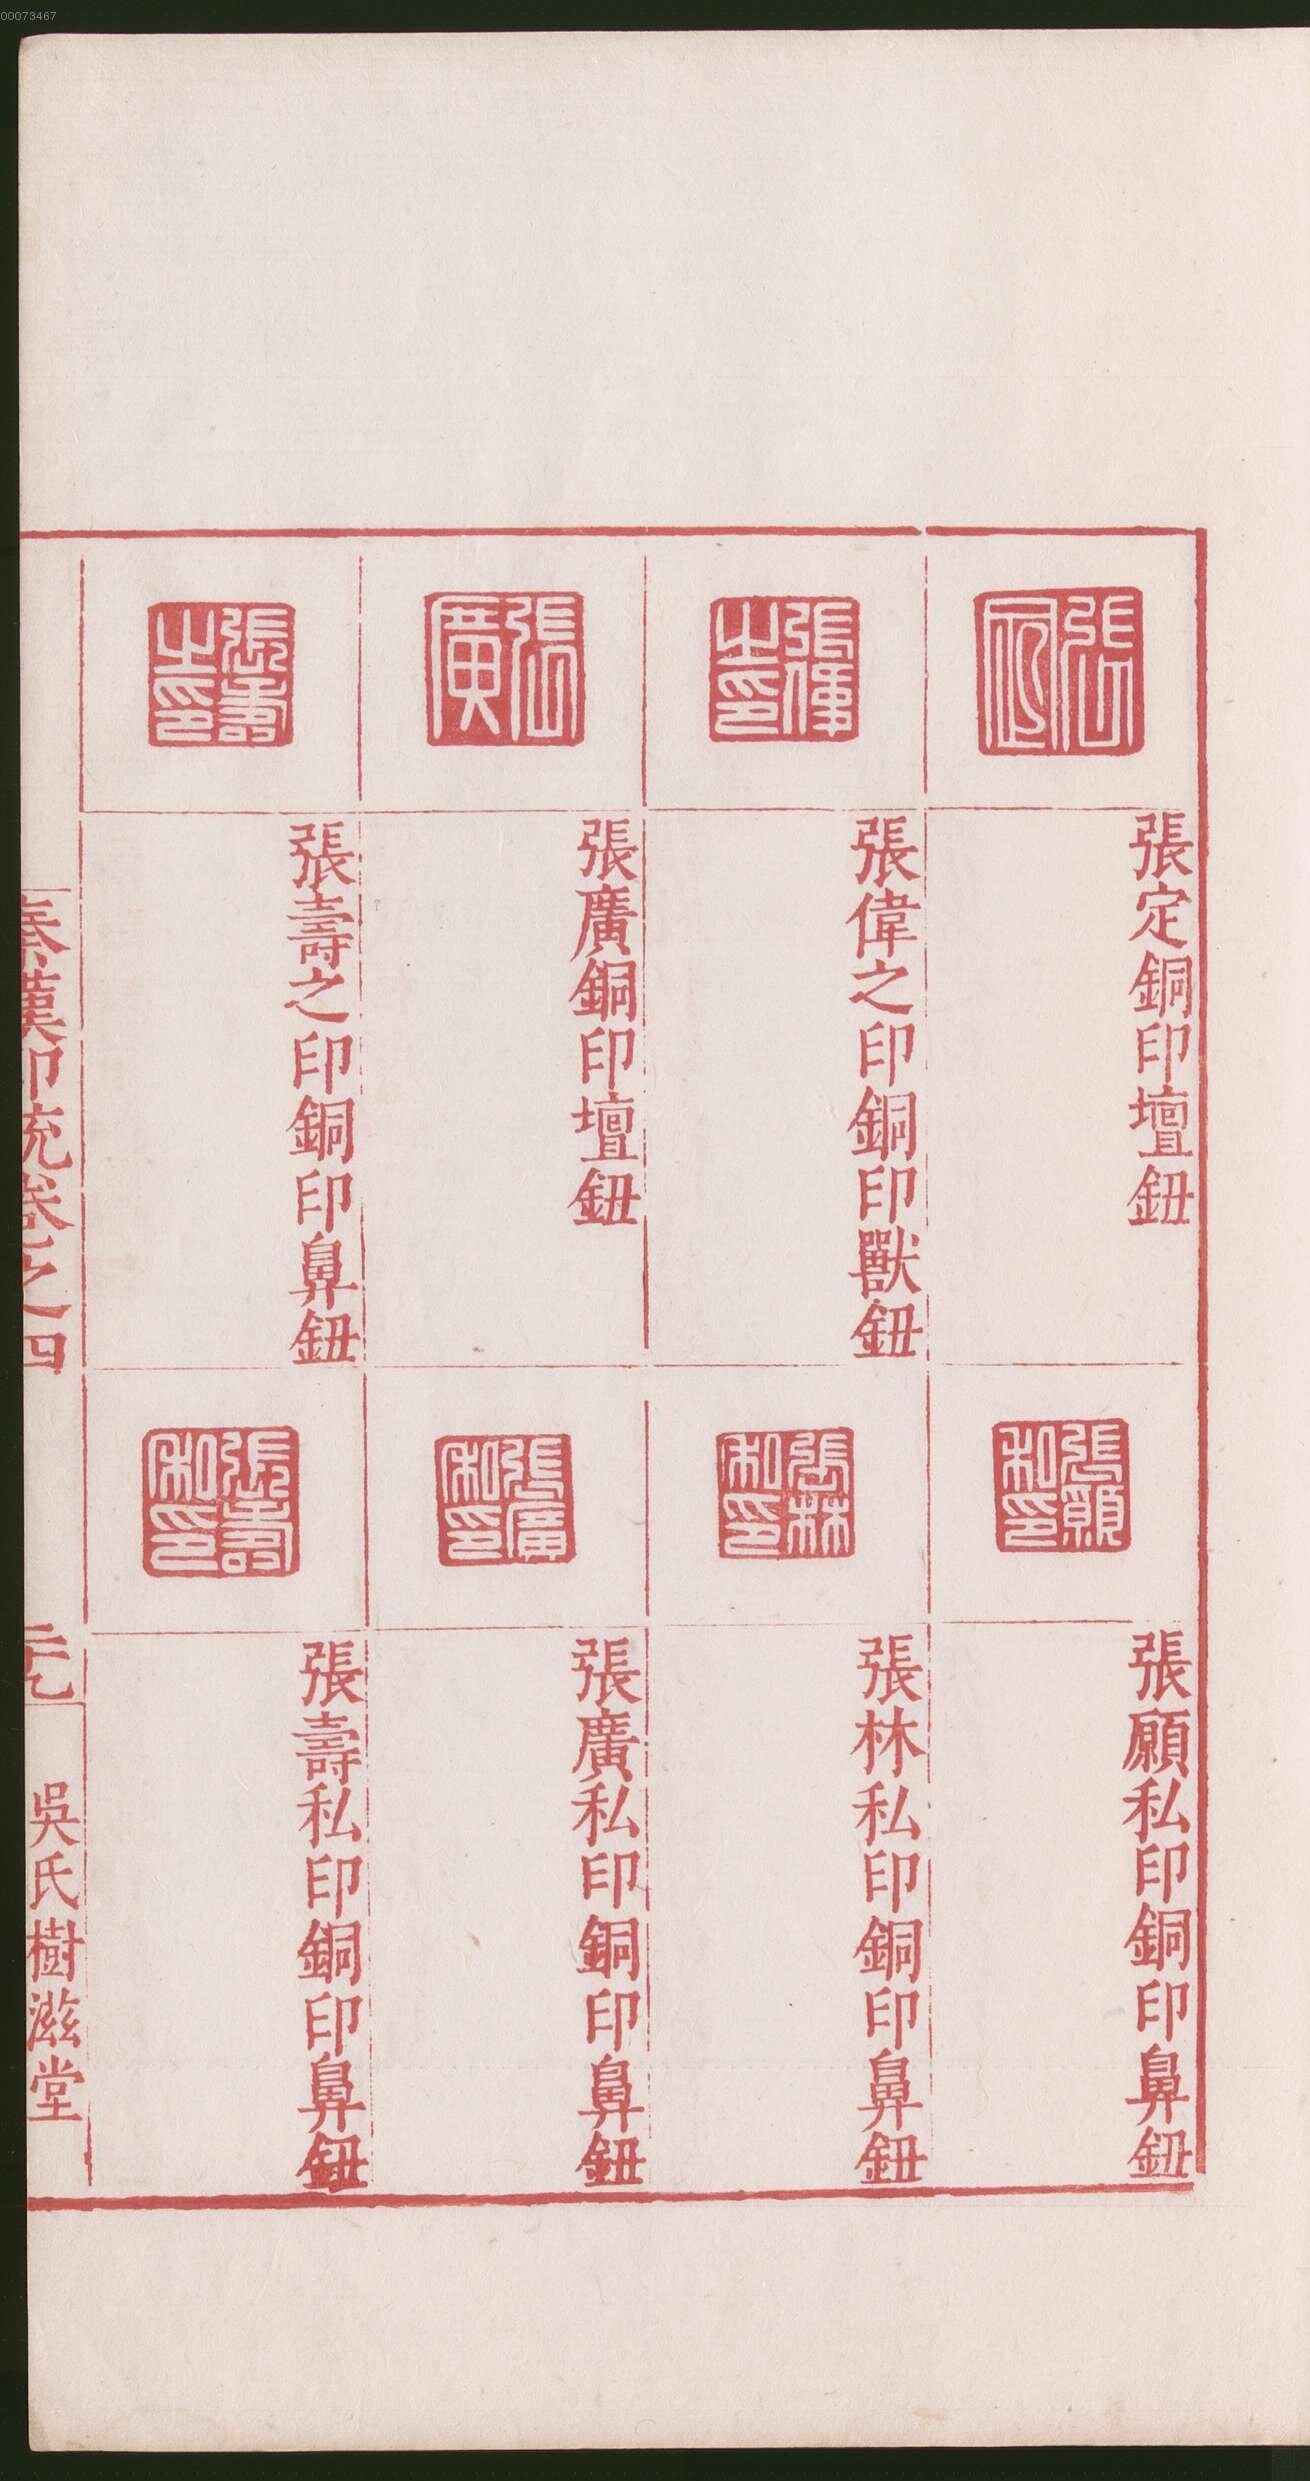 00073467
張定
張定銅印壇鈕
張願私印
張願私印銅印鼻鈕
張偉之印
張偉之印銅印獸鈕
張林私印
張林私印銅印鼻鈕
張廣
張廣銅印壇鈕
張廣私印
張廣私印銅印鼻鈕
張壽之印
張壽之印銅印鼻鈕
張壽私印
張壽私印銅印鼻鈕
秦漢印統卷之四
吳氏樹滋堂